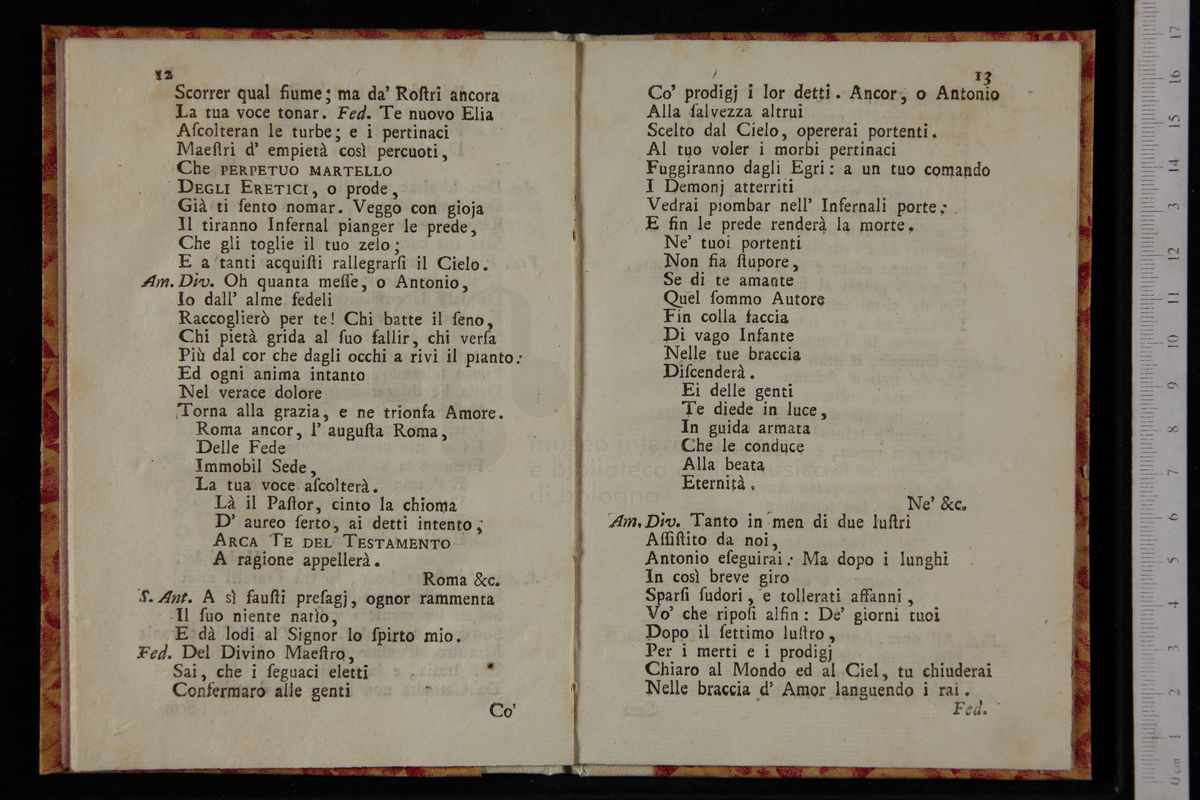 12
Scorrer qual fiume; ma da' Roſtri ancora
La tua voce tonar. Fed. Te nuovo Elia
Aſcolteran le turbe; e i pertinaci
Maeſtri d' empietà così percuoti,
Che PERPETUO MARTELLO
DEGLI ERETICI, o prode,
Già ti ſento nomar. Veggo con gioja
Il tiranno Infernal pianger le prede,
Che gli toglie il tuo zelo;
E a tanti acquiſti rallegrarſi il Cielo.
Am. Div. Oh quanta meſſe, o Antonio,
Io dall' alme fedeli
Raccoglierò per te! Chi batte il ſeno,
Chi pietà grida al ſuo fallir, chi verſa
Più dal cor che dagli occhi a rivi il pianto:
Ed ogni anima intanto
Nel verace dolore
Torna alla grazia, e ne trionfa Amore.
Roma ancor, l' auguſta Roma,
Delle Fede
Immobil Sede,
La tua voce aſcolterà.
Là il Paſtor, cinto la chioma
D' aureo ſerto, ai detti intento,
ARCA TE DEL TESTAMENTO
A ragione appellerà.
Roma &c.
S. Ant. A sì fauſti preſagj, ognor rammenta
Il ſuo niente natìo,
E dà lodi al Signor lo ſpirto mio.
Fed. Del Divino Maeſtro,
Sai, che i ſeguaci eletti
Confermaro alle genti
Co'
13
Co' prodigj i lor detti. Ancor, o Antonio
Alla ſalvezza altrui
Scelto dal Cielo, opererai portenti.
Al tuo voler i morbi pertinaci
Fuggiranno dagli Egri: a un tuo comando
I Demonj atterriti
Vedrai piombar nell' Infernali porte:
E fin le prede renderà la morte.
Ne' tuoi portenti
Non fia ſtupore,
Se di te amante
Quel ſommo Autore
Fin colla faccia
Di vago Infante
Nelle tue braccia
Diſcenderà.
Ei delle genti
Te diede in luce,
In guida armata
Che le conduce
Alla beata
Eternità.
Ne' &c.
Am. Div. Tanto in men di due luſtri
Aſſiſtito da noi,
Antonio eſeguirai: Ma dopo i lunghi
In così breve giro
Sparſi ſudori, e tollerati affanni,
Vo' che ripoſi alfin: De' giorni tuoi
Dopo il ſettimo luſtro,
Per i merti e i prodigj
Chiaro al Mondo ed al Ciel, tu chiuderai
Nelle braccia d' Amor languendo i rai.
Fed.